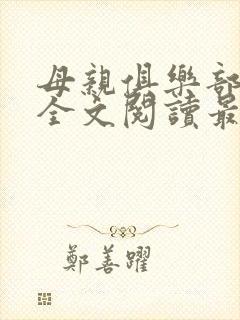 母親俱樂部
全文閱讀最
鄭善躍